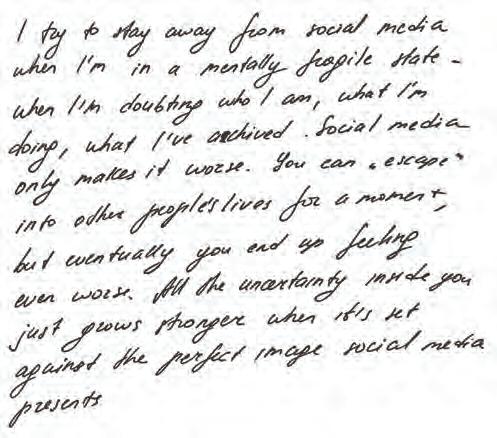 I try to stay away from social media
when I'm in a mentally fragile state -
when I'm doubting who I am, what I'm
doing, what I've archived. Social media
only makes it worse. You can „escape"
into other people's lives for a moment,
but eventually you end up feeling
even worse. All the uncertainty inside you
just grows stronger when it's set
against the perfect image social media
presents